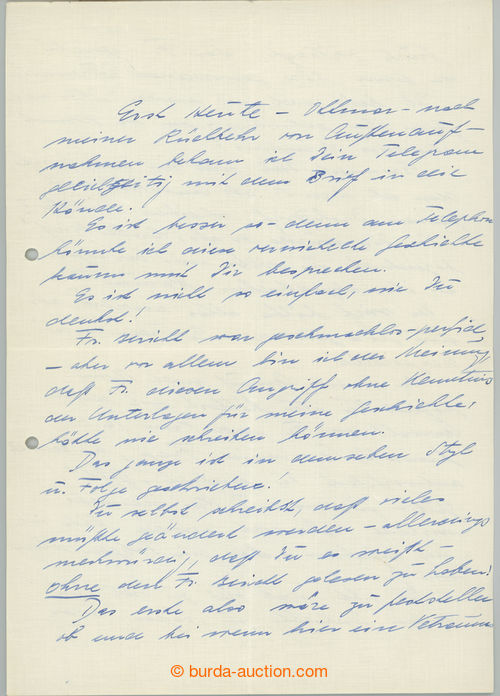 Erst Heute – Ottmar – nach
meiner Rückkehr von Außenauf-
nahmen bekam ich Dein Telegram
gleichzeitig mit dem Brief in die
Hände.
Es ist besser so – denn am Telephon
könnte ich diese verwickelte Geschichte
kaum mit Dir besprechen.
Es ist nicht so einfach, wie Du
denkst!
Fr. Bericht war geschmacklos-perfid
– aber vor allem bin ich der Meinung,
daß Fr. diesen Angriff ohne Kenntniss
der Unterlagen für meine Geschichte,
hätte nie schreiben können.
Das ganze ist in demselben Styl
u. Folge geschrieben!
Du selbst schreibst, daß vieles
müßte geändert werden – allerdings
merkwürdig, daß Du es weißt –
ohne den Fr. Bericht gelesen zu haben!
Das erste also wäre zu feststellen
ob und bei wem hier eine
© burda-auction.com